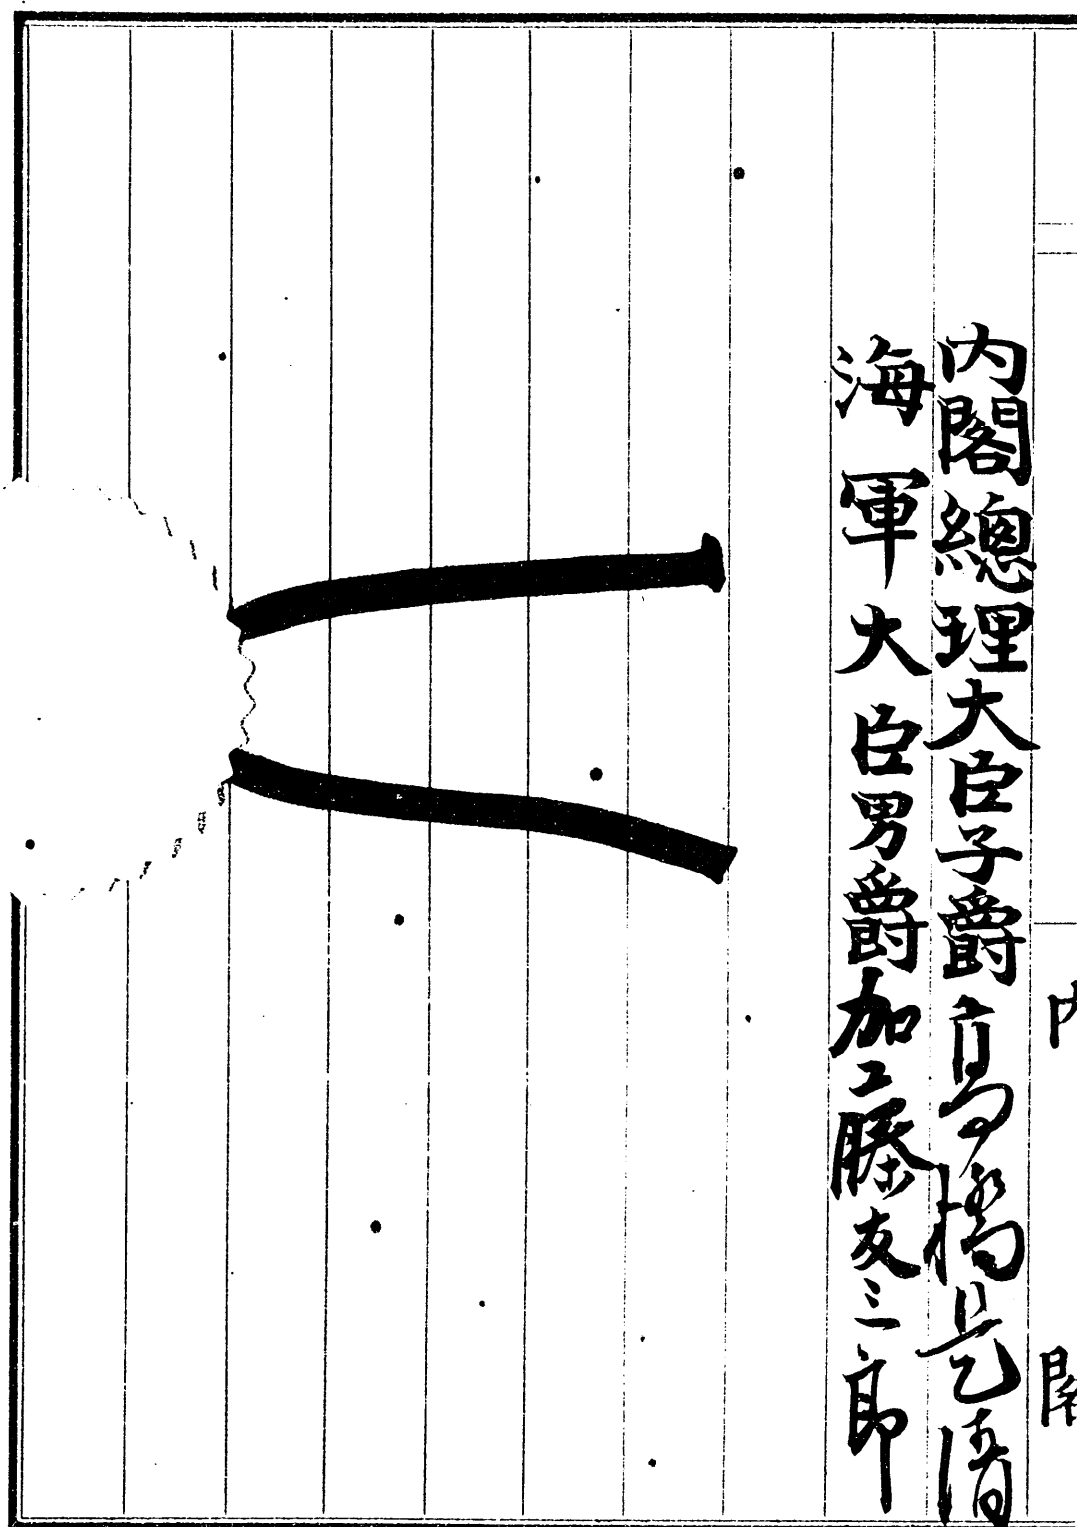 内閣
内閣總理大臣子爵高橋是清
海軍大臣男爵加藤友三郎